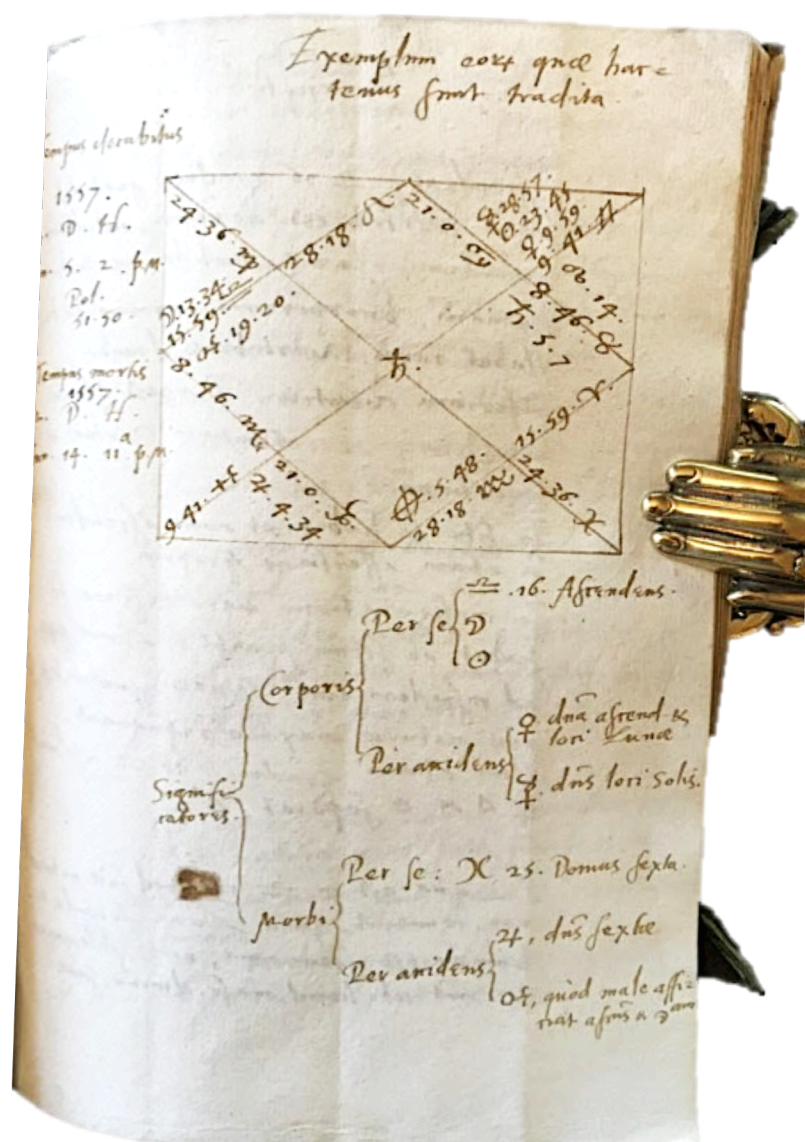 Exemplum eorꝝ quæ hac=
tenus sunt tradita.
Tempus decubitus
1557.
D. H.
5. 2. p.m.
Pol.
51.50.
Tempus mortis
1557.
D. H.
14. 11ᵃ p.m.
24.36. ♍
28.18 ♌
21.0. ♋
28.57.
☉.23.45
♀.9.59.
9 41. ♊
☋.14.
8.46. ♉
♄.5.7
☽.13.34
15.59. ♎
♂.19.20.
8.46. ♏
♄.
15.59. ♈
24.36. ♓
9 41. ♐
21.0. ♑
♃.4.34
.5.48.
28.18. ♒
Significatores.
Corporis
Per se
♎ .16. Ascendens.
☽
☉
Per accidens
♀ dn̄a ascend. &
loci Lunæ
☿. dn̄s loci Solis.
Morbi
Per se: ♓ 25. Domus sexta.
Per accidens
♃, dn̄s sextæ
♂, quod male affi=